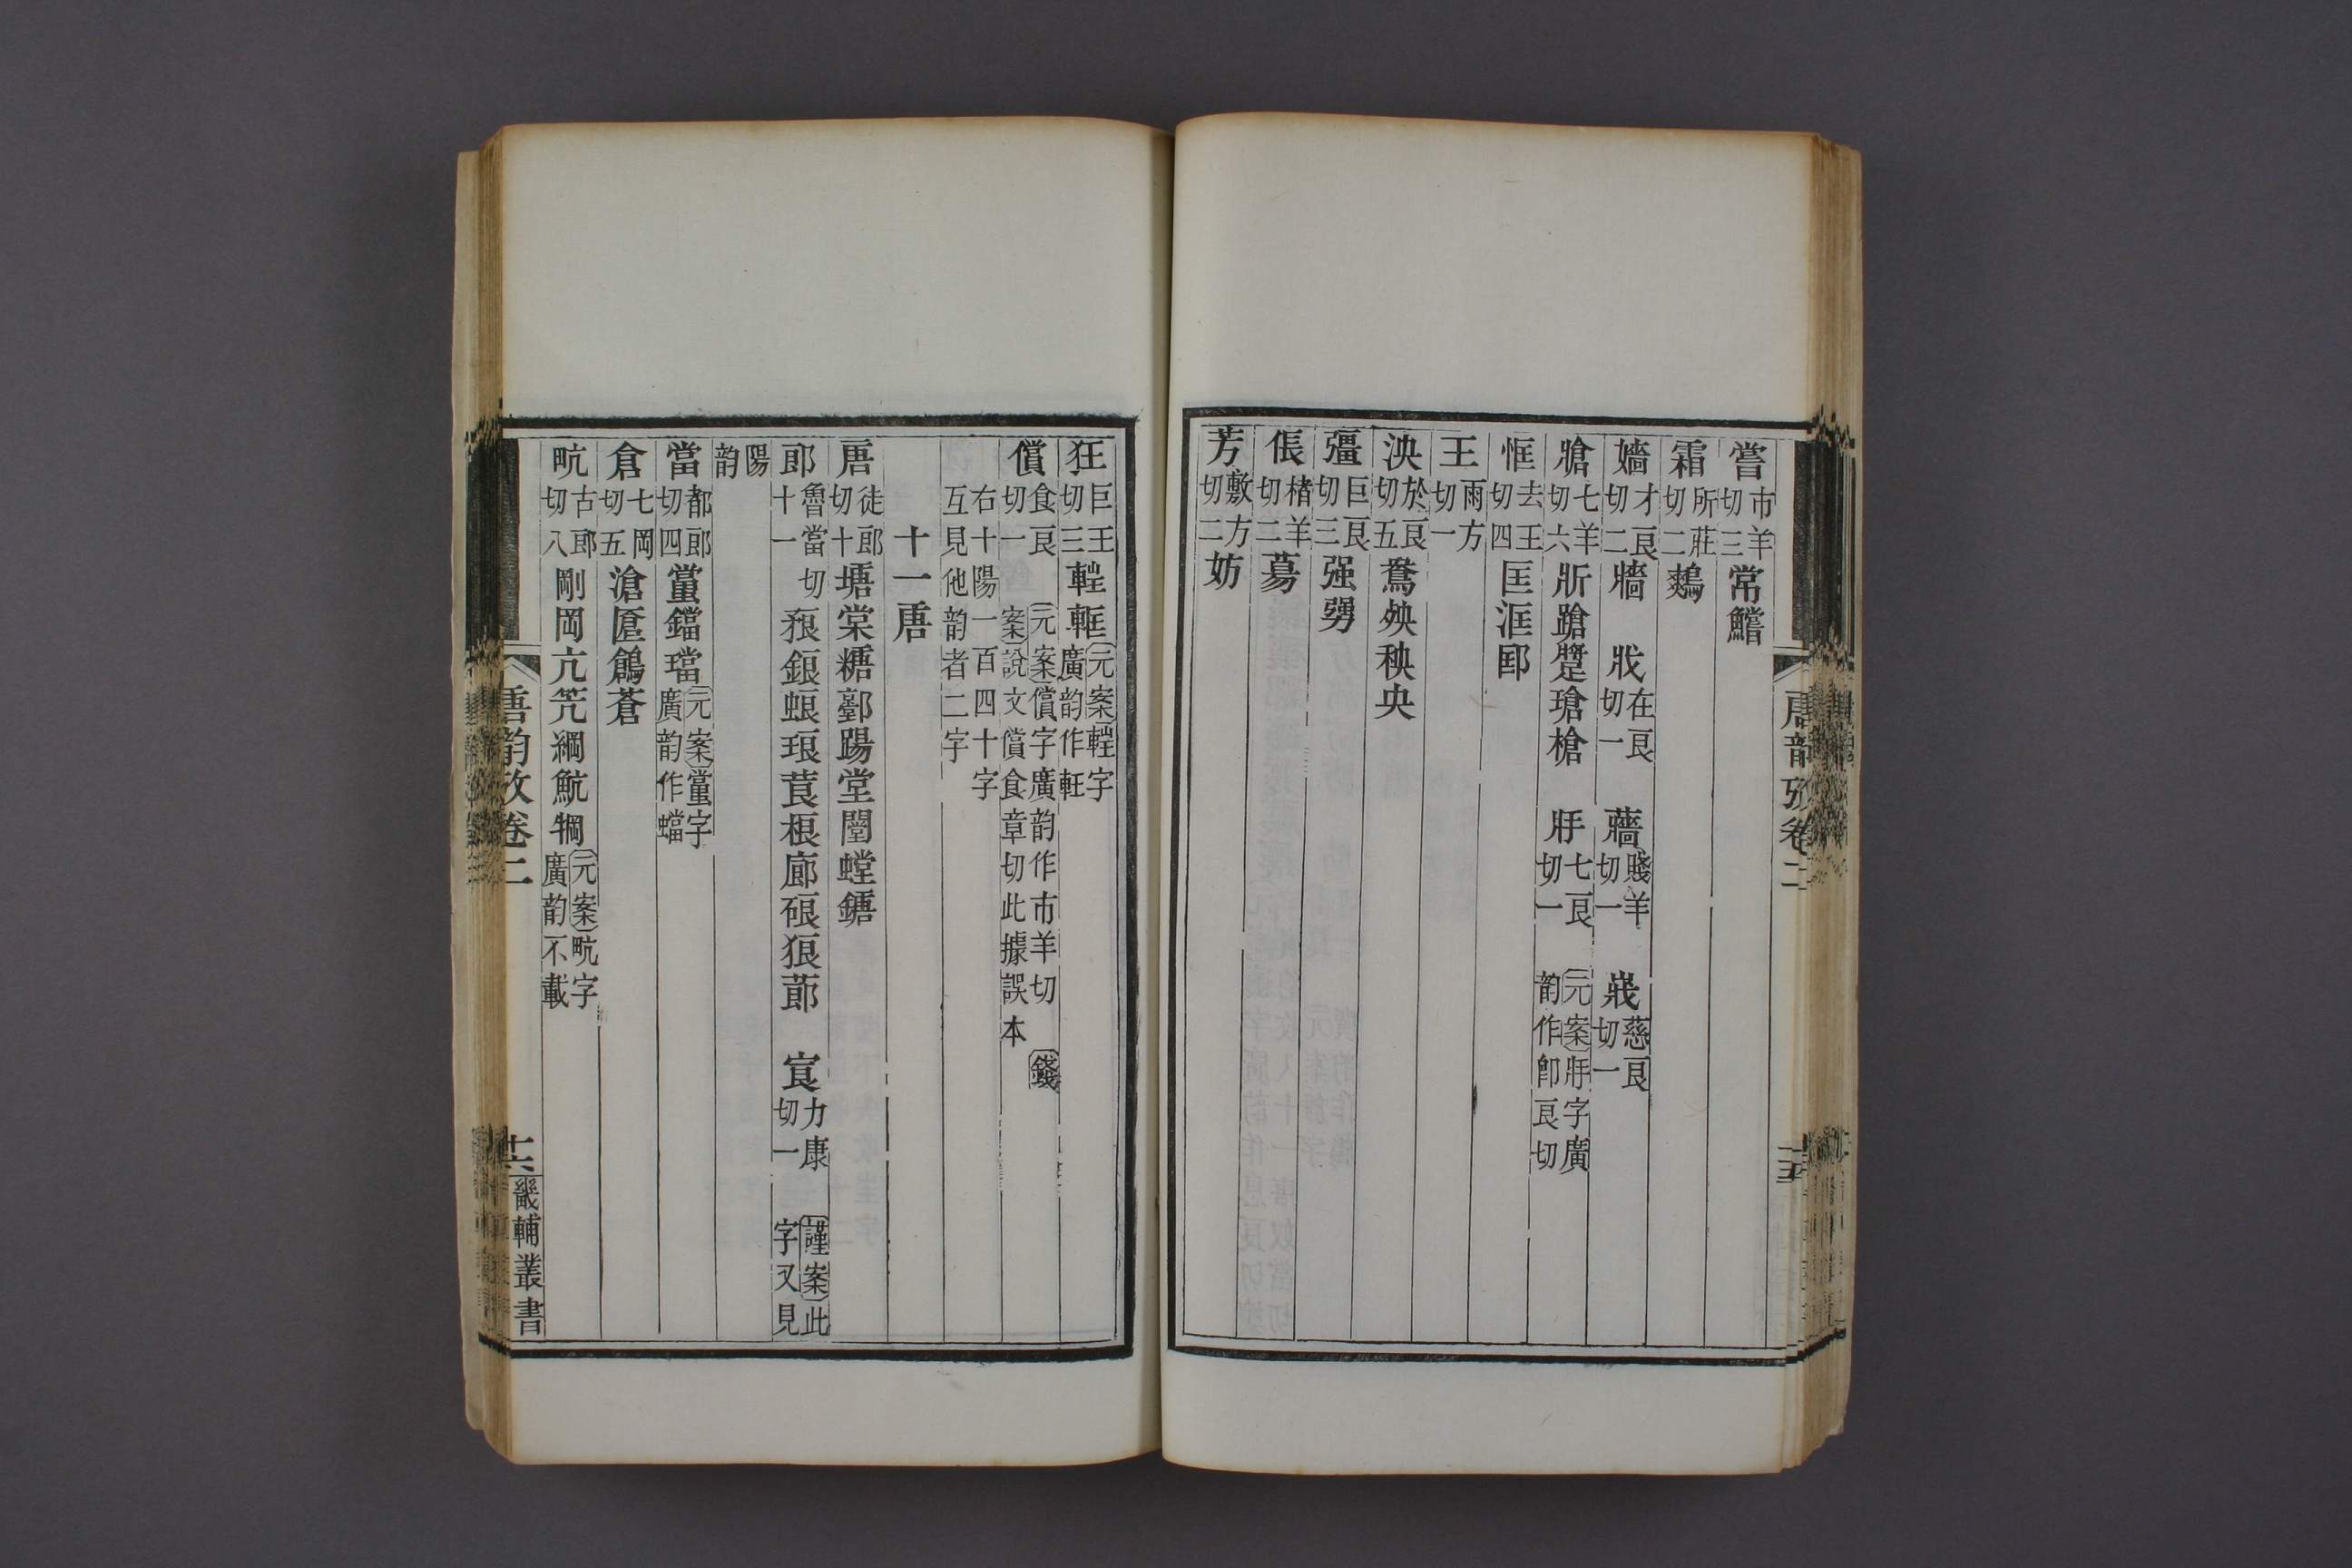 嘗市羊切三常鱨
霜所莊切二鷞
嬙才良切二牆 戕在良切一 蘠賤羊切一 戕慈良切一
牄七羊切六斨蹌蹩瑲槍 牂七良切一 元案牂字廣韵作卽良切
恇去王切四匡洭邼
王雨方切一
泱於良切五鴦殃秧央
彊巨良切三强勥
倀楮羊切二募
芳敷方切二妨
唐韵攷卷二
十五
狂巨王切三軖軭元案軖字廣韵作軠
償食良切一 元案償字廣韵作市羊切 錢案說文償食章切此據誤本
右十陽一百四十字互見他韵者二字
十一唐
唐徒郎切十塘棠糖鄌踼堂闛螳鎕
郎魯當切十一 狼鋃蜋琅莨桹廊硠狼蓈 㝗力康切一 謹案此字又見
陽韵
當都郎切四蟷鐺璫元案蟷字廣韵作蟷
倉七岡切五滄匫鶬蒼
㽘古郎切八剛岡亢笐綱魧犅元案㽘字廣韵不載
唐韵攷卷二
十六
畿輔叢書